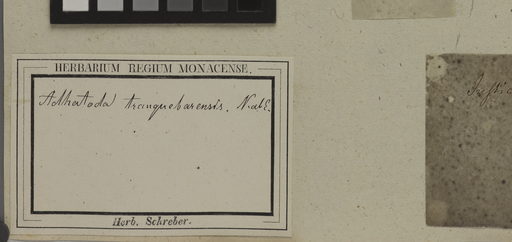 HERBARIUM REGIUM MONACENSE.
Adhatoda tranquebarensis. NabE.
Herb. Schreber.